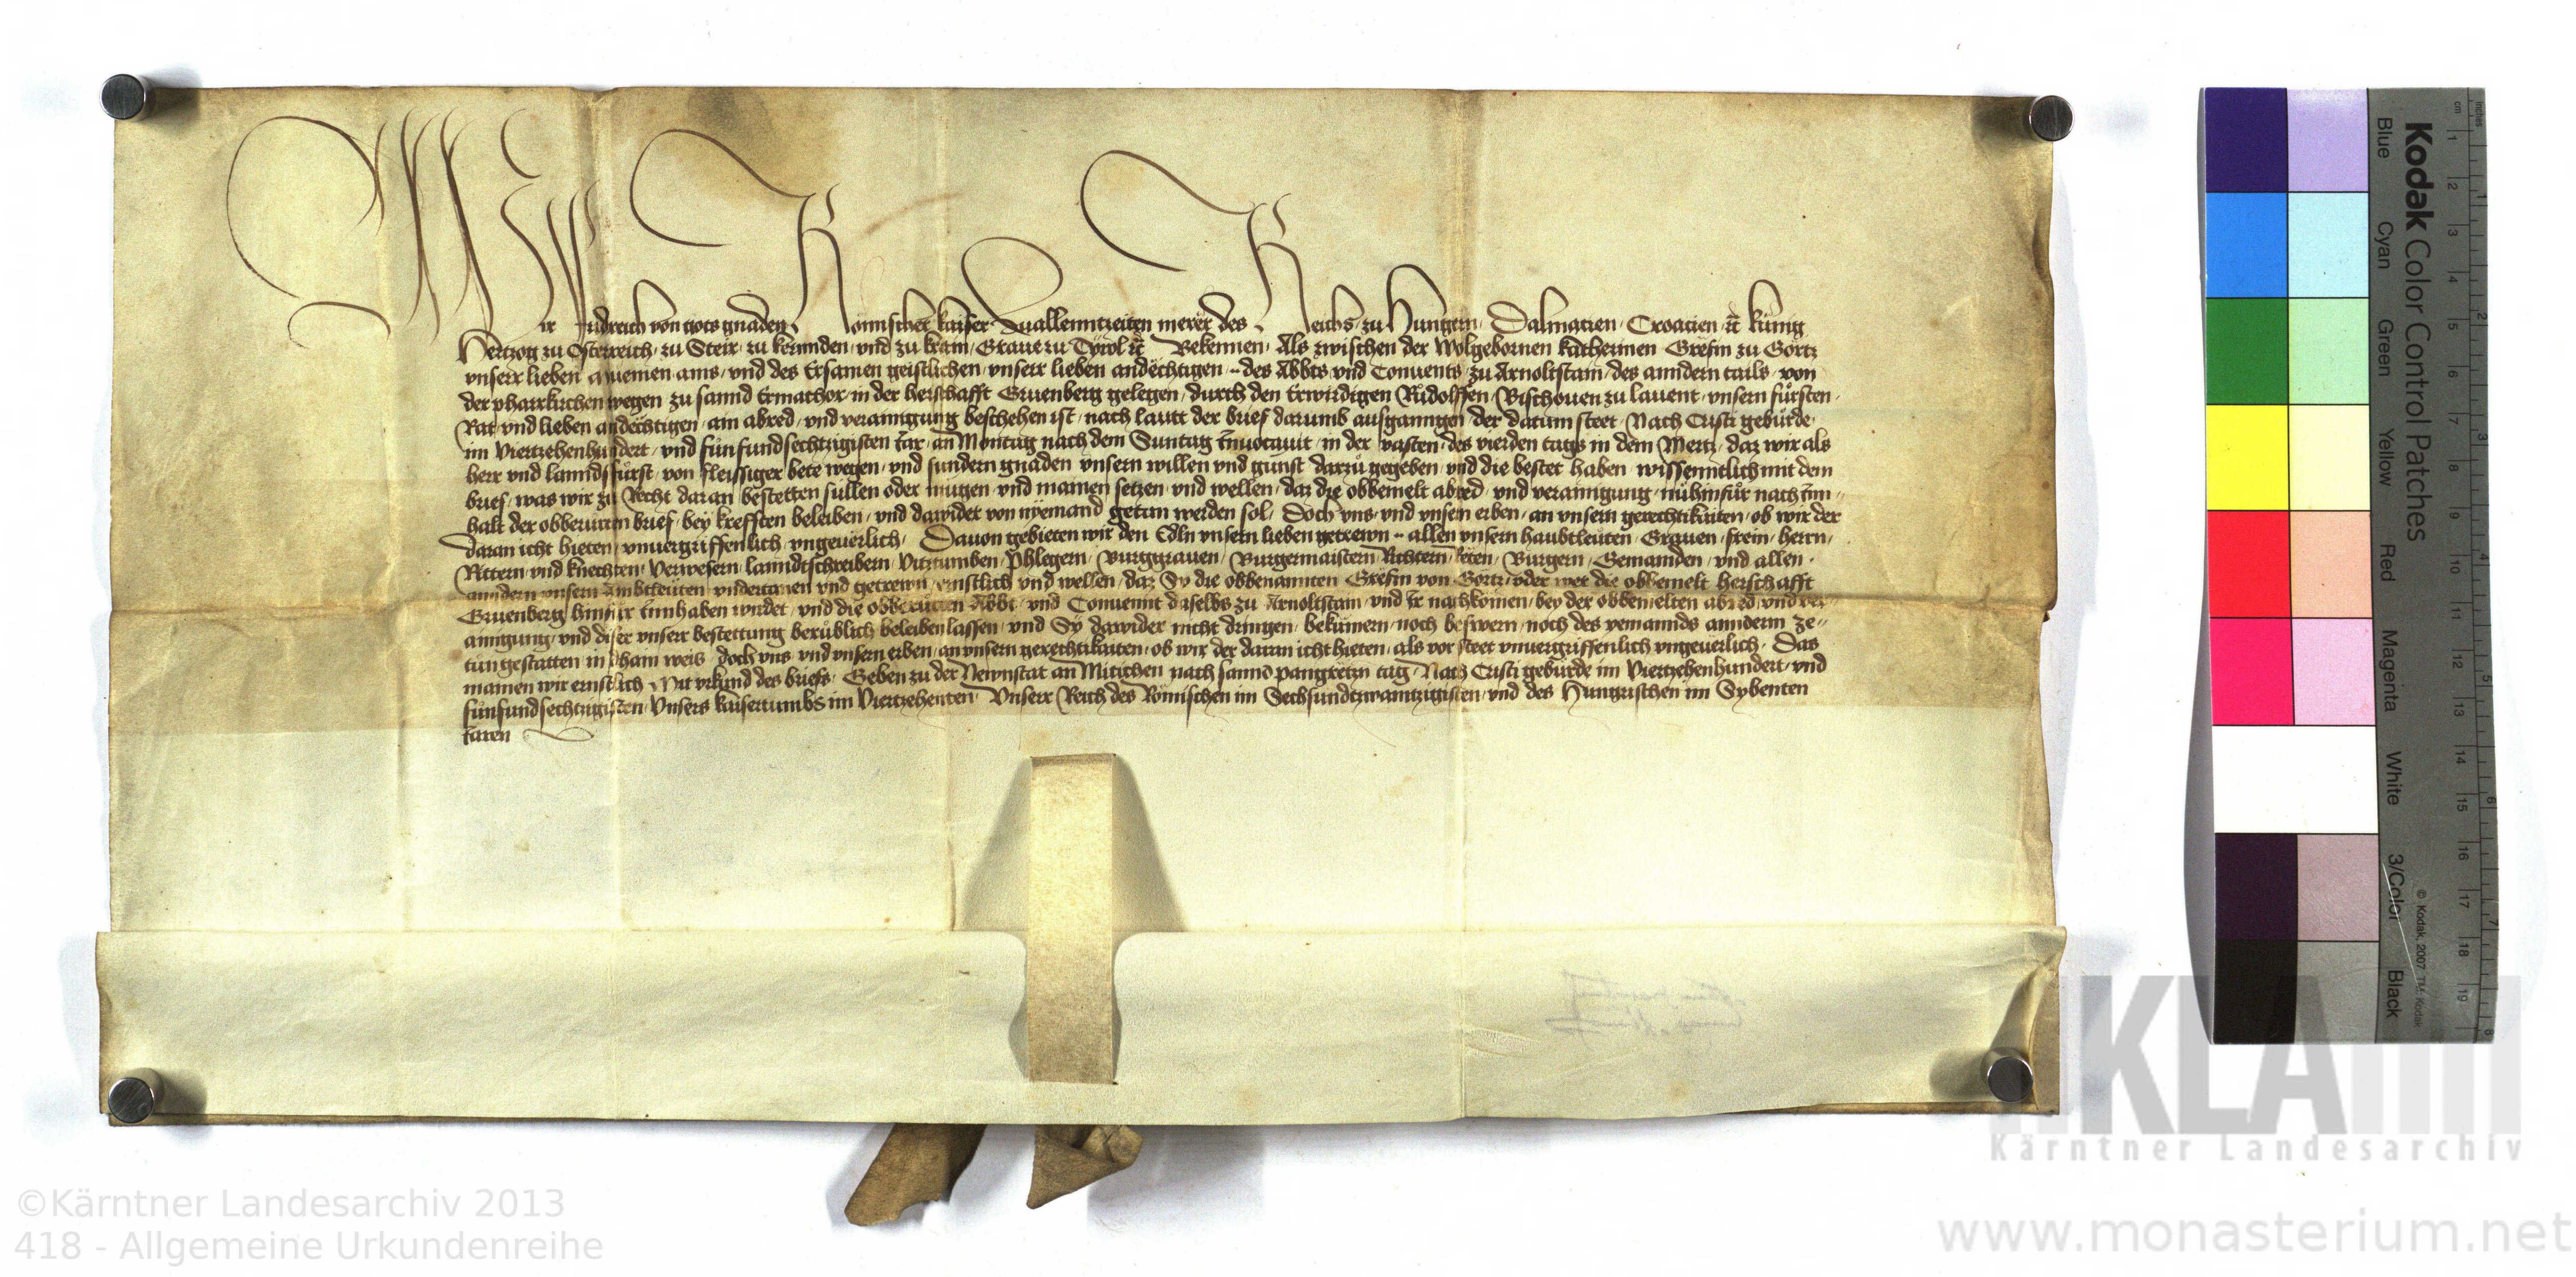 Wir Fridreich von gots gnaden Römischer kaiser zuallenntzeiten merer des Reichs zu Hungern Dalmacien Croacien ꝛc̄ kunig
Hertzog zu Österreich zu Steir zu kernnden vnd zu krain Graue zu Tyrol ꝛc̄ Bekennen Als zwischen der Wolgebornen katherinen Grefin zu Görtz
vnserr lieben Muemen ains vnd des Ersamen geistlichen vnserr lieben andechtigen .. des Abbts vnd Conuents zu Arnoltstain des anndern tails von
der pharrkirchen wegen zu sannd Ermachor in der herschafft Gruenberg gelegen durch den Erwirdigen Rŭdolffen Bischouen zu lauent vnsern fürsten
Rat vnd lieben andechtigen ain abred vnd verainigung beschehen ist nach lautt der brief darumb ausganngen der datum steet Nach Cristi gebürde
im Viertzehenhundert vnd fünfundsechtzigisten Iar an Montag nach dem Suntag Inuocauit in der vasten des vierden tags in dem Mertz daz wir als
herr vnd lanndsfürst von fleissiger bete wegen vnd sundern gnaden vnsern willen vnd gunst darzu gegeben vnd die bestet haben wissenntlich mit dem
brief was wir zu Recht daran bestetten sullen oder mügen vnd mainen setzen vnd wellen daz die obbemelt abred vnd verainigung nu hinfür nach Inn-
halt der obberurten brief bey krefften beleiben vnd dawider von nyemand getan werden sol Doch vns vnd vnsern erben an vnsern gerechtikaiten ob wir der
daran icht hieten vnuergriffenlich vngeuerlich Dauon gebieten wir den Edln vnsern lieben getrewn .. allen vnsern haubtleuten Grauen frein herrn
Rittern vnd knechten Verwesern lanndtschreibern Vitztumben Phlegern Burggrauen Burgermaistern Richtern Reten Burgern Gemainden vnd allen
anndern vnsern Ambtleuten vndertanen vnd getrewn ernstlich vnd wellen daz Sy die obbenannten Grefin von Görtz oder wer die obbemelt herschafft
Gruenberg hinfur Innhaben wirdet vnd die obberurten Abbt vnd Conuennt daselbs zu Arnoltstain vnd Ir nachkomen bey der obbemelten abred vnd ver
ainigung vnd diser vnserr bestettung berüblich beleiben lassen vnd Sy dawider nicht dringen bekümern noch beswern noch des yemannds anndern ze-
tun gestatten in dhain weis doch vns vnd vnsern erben an vnsern gerechtikaiten ob wir der daran icht hieten als vor steet vnuergriffenlich vngeuerlich Das
mainen wir ernstlich Mit vrkund des briefs Geben zu der Newnstat an Mitichen nach sannd pangretzn tag Nach Cristi gebürde im Viertzehenhundert vnd
fünfundsechtzigisten Vnsers kaisertumbs im Viertzehenten Vnserr Reich des Römischen im Sechsundtzwaintzigisten vnd des Hungrischen im Sybenten
Iaren
Kodak Color Control Patches
Blue Cyan Green Yellow Red Magenta White 3/Color Black
© Kodak, 2007 TM: Kodak
cm 1 2 3 4 5 6 7 8 9 10 11 12 13 14 15 16 17 18 19
inches 1 2 3 4 5 6 7 8
KLA
Kärntner Landesarchiv
©Kärntner Landesarchiv 2013
418 - Allgemeine Urkundenreihe
www.monasterium.net